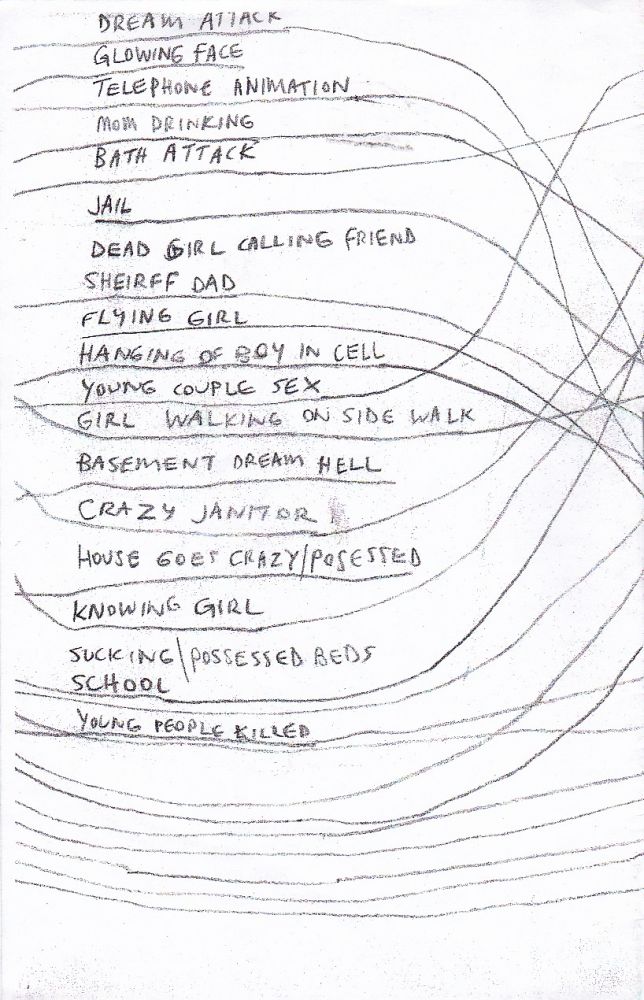 DREAM ATTACK
GLOWING FACE
TELEPHONE ANIMATION
MOM DRINKING
BATH ATTACK
JAIL
DEAD GIRL CALLING FRIEND
SHEIRFF DAD
FLYING GIRL
HANGING OF BOY IN CELL
YOUNG COUPLE SEX
GIRL WALKING ON SIDE WALK
BASEMENT DREAM HELL
CRAZY JANITOR
HOUSE GOES CRAZY/POSESSED
KNOWING GIRL
SUCKING\POSSESSED BEDS
SCHOOL
YOUNG PEOPLE KILLED